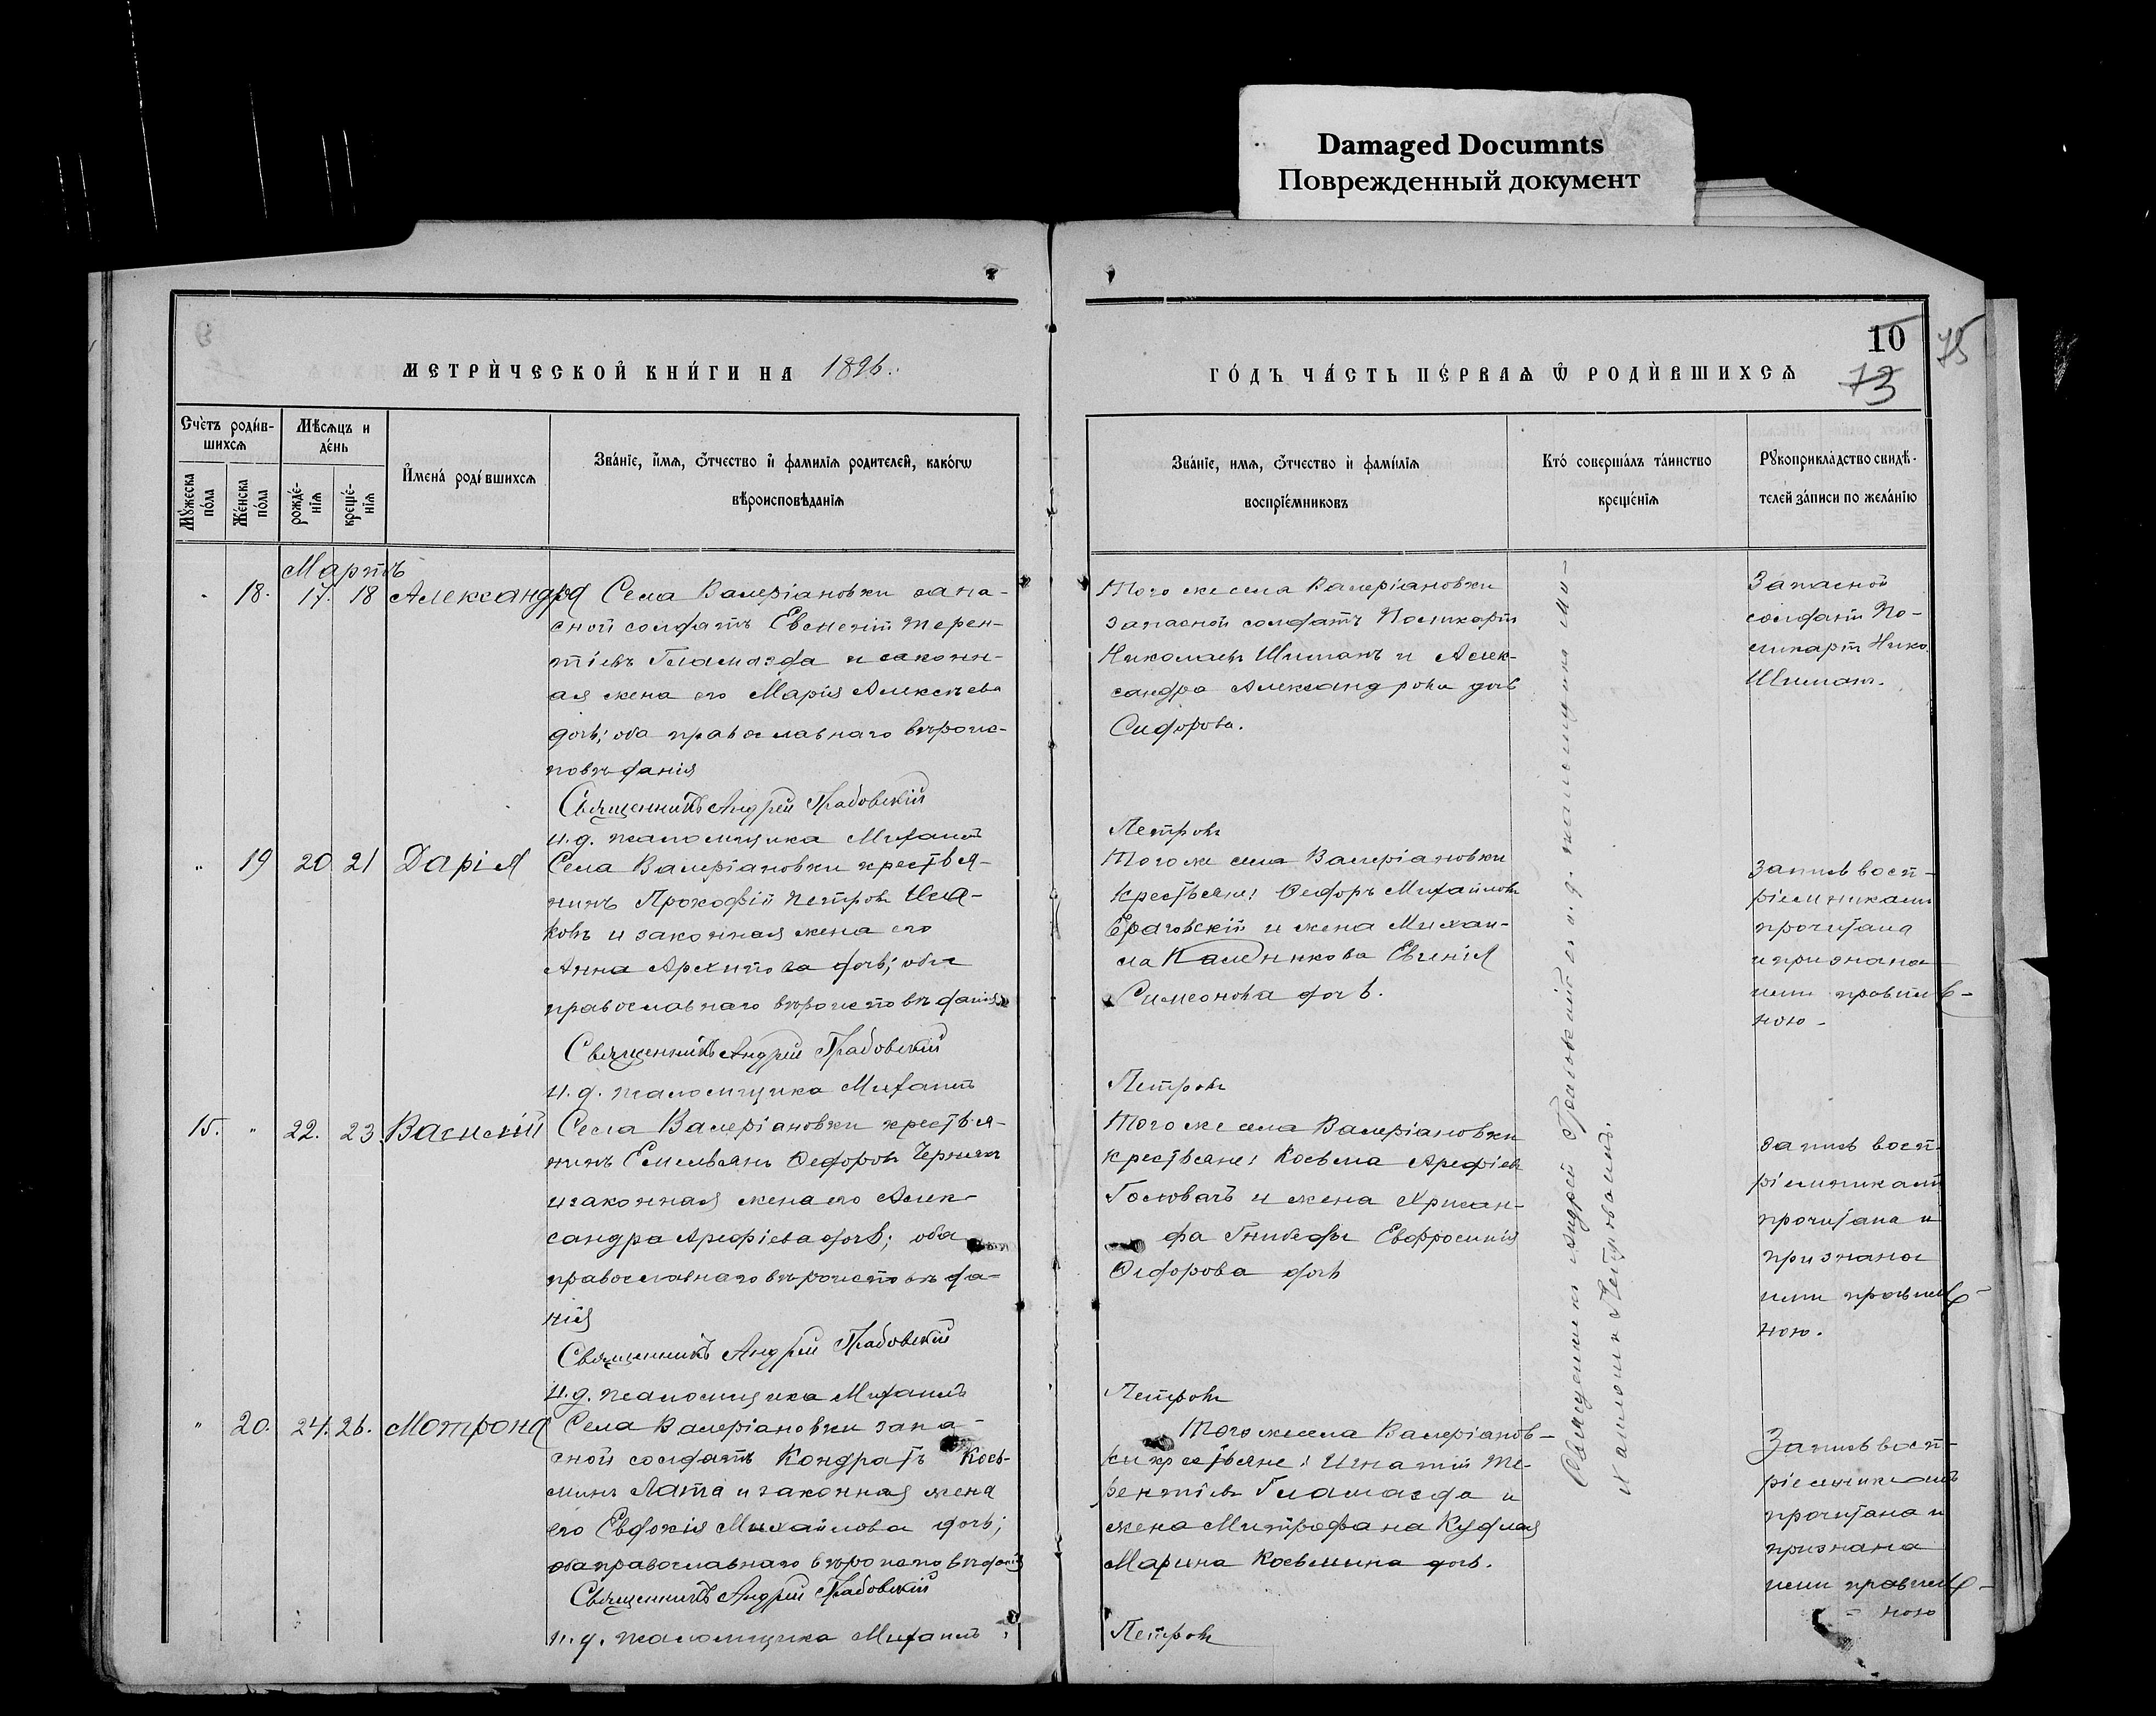 Damaged Documnts
Поврежденный документ
10
75
73
МЕТРИ́ЧЕСКОЙ КНИ́ГИ НА 1896.
ГО́ДЪ ЧА́СТЬ ПЕ́РВАѦ Ѿ РОДИ́ВШИХСѦ
Счетъ роди́в-
шихсѧ
Мѣсѧцъ и
де́нь
Мꙋжеска
по́ла
Же́нска
по́ла
рожде́-
нїѧ
креще́-
нїѧ
Имена̀ роди́вшихсѧ
Зва́нїе, и́мѧ, ѻ҆́тчество и҆ фами́лїѧ роди́телей, како́гѡ
вѣроисповѣ́данїѧ
Зва́нїе, имѧ, ѻ҆́тчество и҆ фами́лїѧ
воспрїе́мниковъ
Кто̀ соверша́лъ та́инство
креще́нїѧ
Рꙋкоприкла́дство свидѣ́-
телей за́писи по жела́нїю
Мартъ
18. 17. 18 Александра Села Валеріановки запа-
сной солдатъ Евсигній Терен-
тіевъ Гламазда и закон-
ая жена его Марія Алексѣева
дочь; оба православнаго вѣроис-
повѣданія
Священникъ Андрей Грабовскій
и. д. псаломщика Михаилъ
Того же села Валеріановки
запасной солдатъ Поликарпъ
Николаевъ Шиманъ и Алек-
сандра Александрова дочь
Сидорова.
Петровъ
Запасной
солдатъ По-
ликарпъ Нико.
Шиманъ.
" 19 20 21 Дарія
Села Валеріановки крестья-
нинъ Прокофій Петровъ Иса-
ковъ и законная жена его
Анна Архипова дочь; оба
православнаго вѣроисповѣданія
Священникъ Андрей Грабовскій
и. д. псаломщика Михаилъ
Того же села Валеріановки
крестьяне: Ѳедоръ Михайловъ
и жена Михаи-
ла Калѣникова Евгенія
Симеонова дочь.
Петровъ
Запись восп-
ріемникамъ
прочитана
и признана
ими правиль-
ною.
15. " 22. 23 Василій
Села Валеріановки крестья-
нинъ Емельянъ Ѳедоровъ Чернякъ
и законная жена его Алек-
сандра Арефіева дочь; оба
православнаго вѣроисповѣда-
нія
Священникъ Андрей Грабовскій
и. д. псаломщика Михаилъ
Того же села Валеріановки
крестьяне: Косьма Арефіевъ
Головачъ и жена Хрисан-
фа Гнибеды Евфросинія
Ѳедорова дочь
Петровъ
Запись восп-
ріемникамъ
прочитана и
признана
ими правиль-
ною.
" 20. 24. 26. Мотрона
Села Валеріановки запа-
сной солдатъ Кондратъ Кось-
минъ Лата и законная жена
его Евдокія Михайлова дочь;
оба православнаго вѣроисповѣданія
Священникъ Андрей Грабовскій
и. д. псаломщика Михаилъ
Того же села Валеріанов-
ки крестьяне: Игнатій Те-
рентіевъ Гламазда и
жена Митрофана Кудлая
Марина Косьмина дочь.
Петровъ
Запись восп-
ріемникамъ
прочитана и
признана
ими правиль-
ною
Священникъ Андрей Грабовскій и и. д. псаломщика Ми-
хаилъ Петровъ.